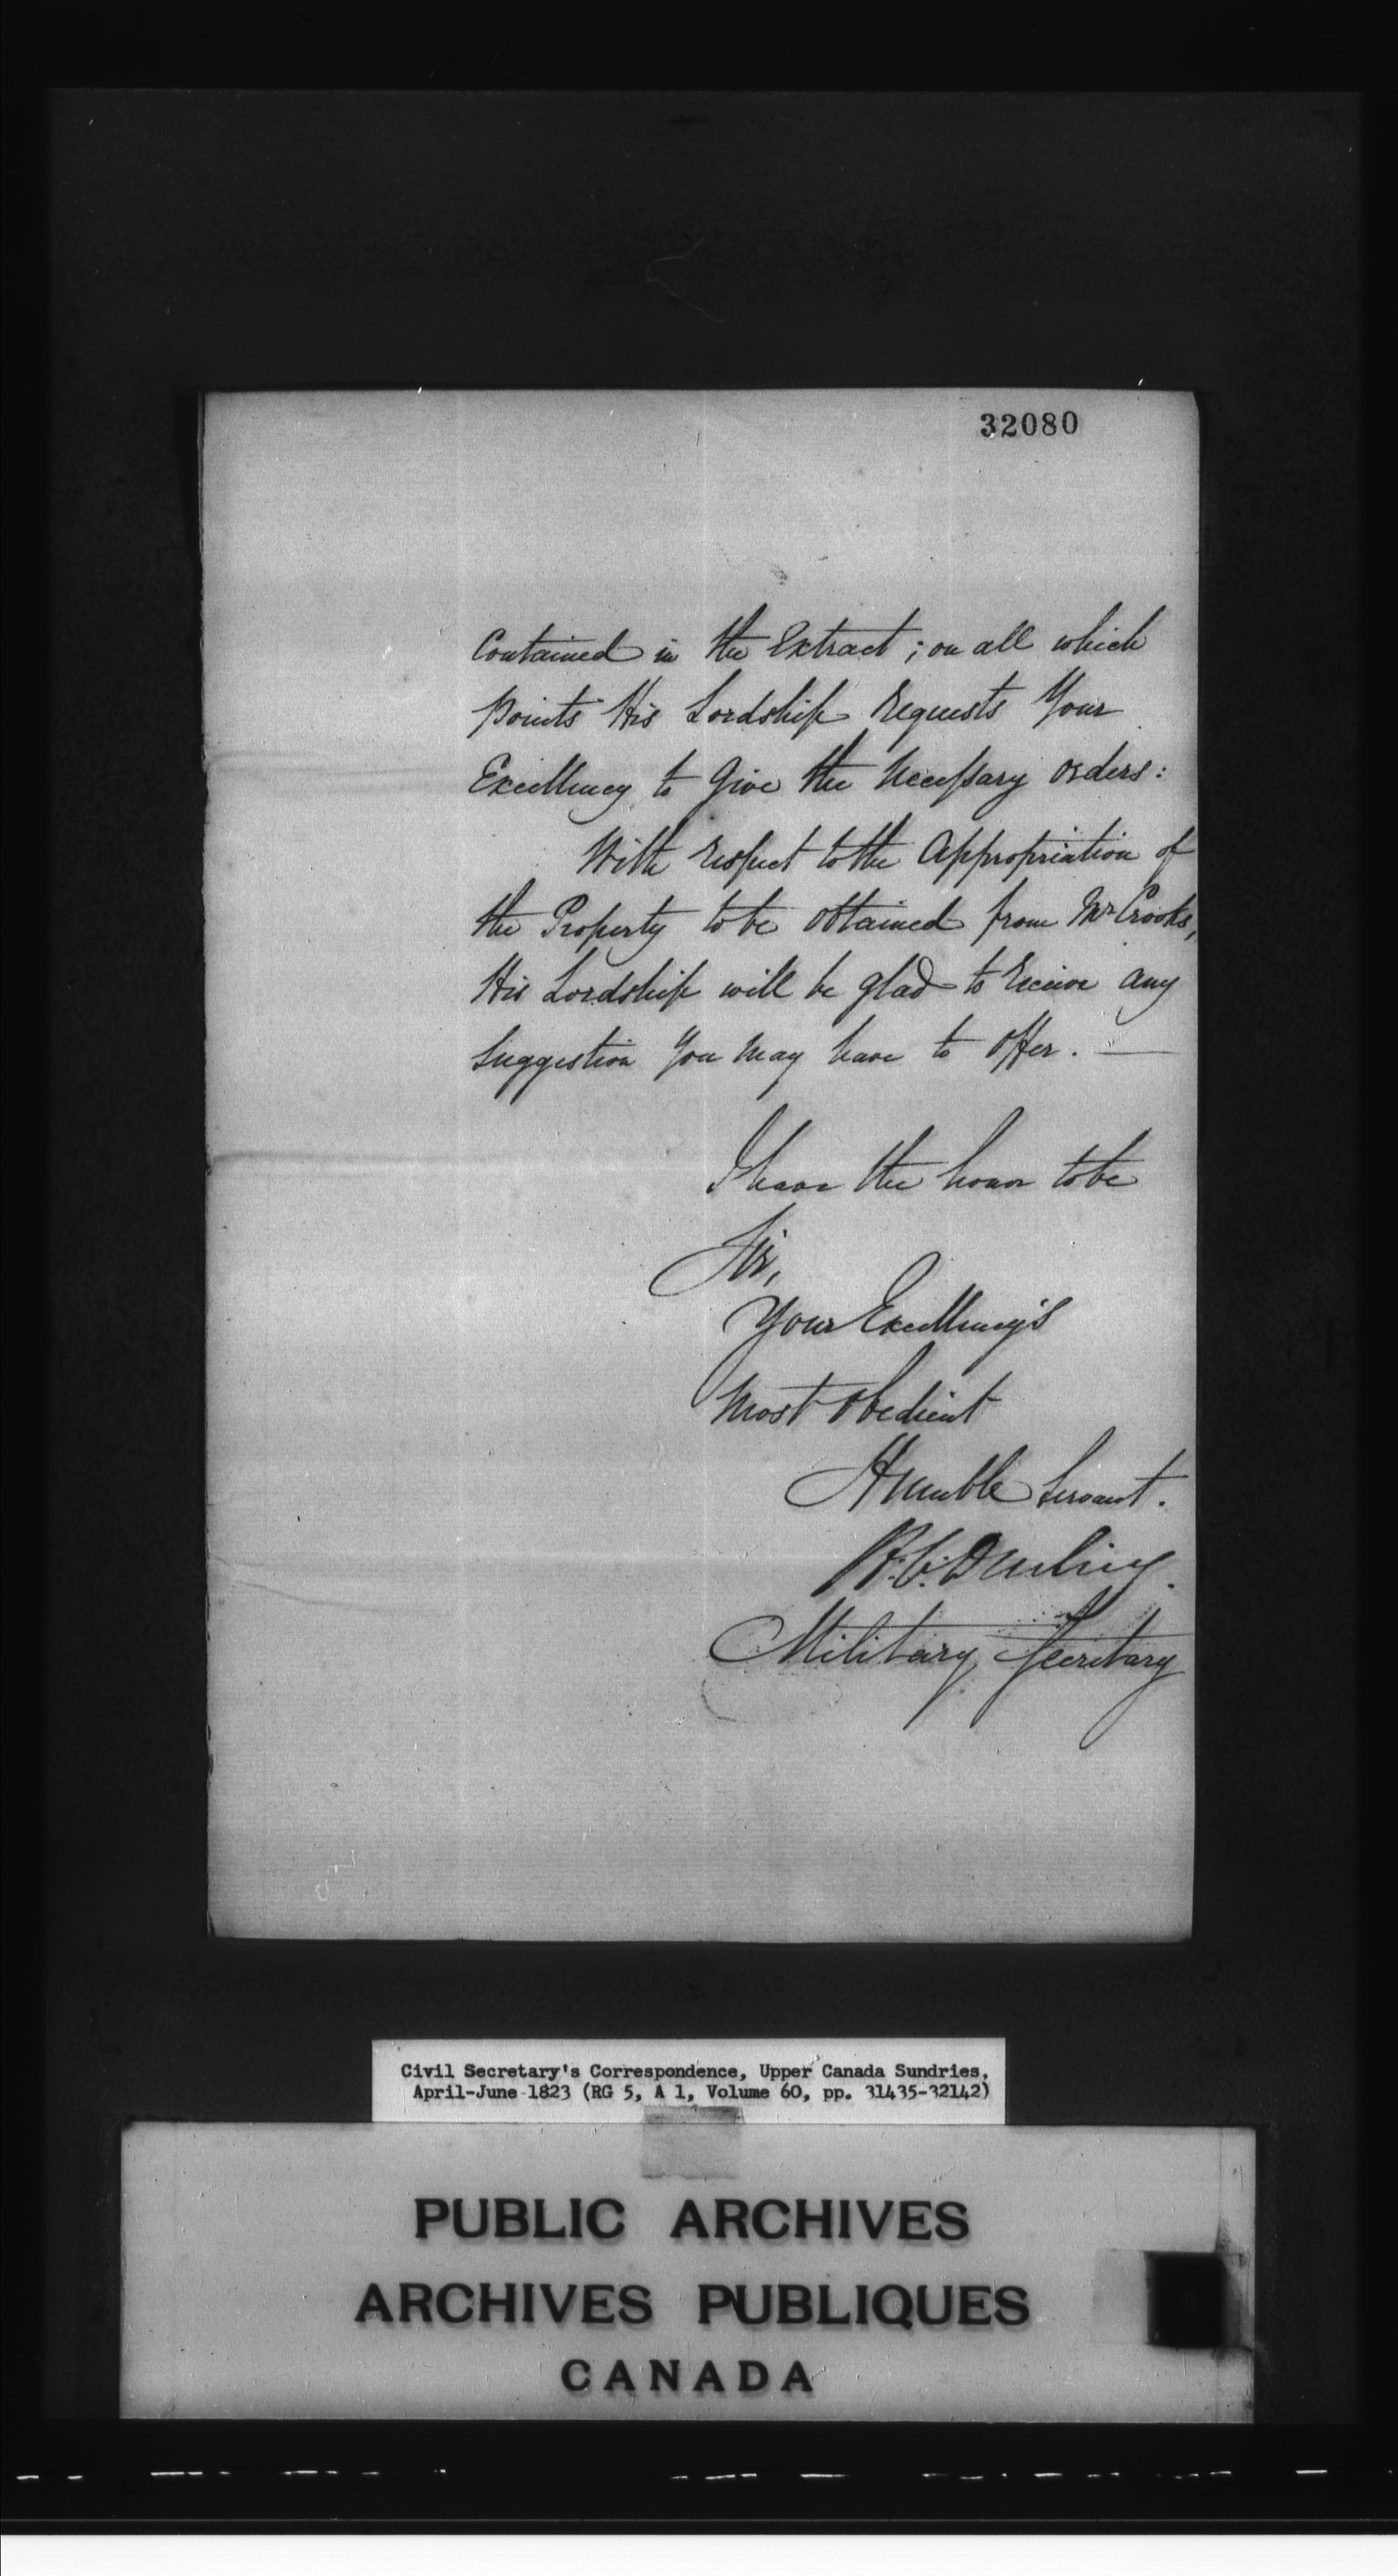 32080
Contained in the Extract; on all which
points His Lordship requests Your
Excellency to Give the Necessary orders:
With respect to the Appropriation of
the Property to be obtained from Mr Crooks,
His Lordship will be glad to receive any
Suggestion You May have to offer. —
I have the honor to be
Sir,
Your Excellency's
Most obedient
Humble Servant.
H. C. Darling.
Military Secretary
Civil Secretary's Correspondence, Upper Canada Sundries,
April-June 1823 (RG 5, A 1, Volume 60, pp. 31435-32142)
PUBLIC ARCHIVES
ARCHIVES PUBLIQUES
CANADA